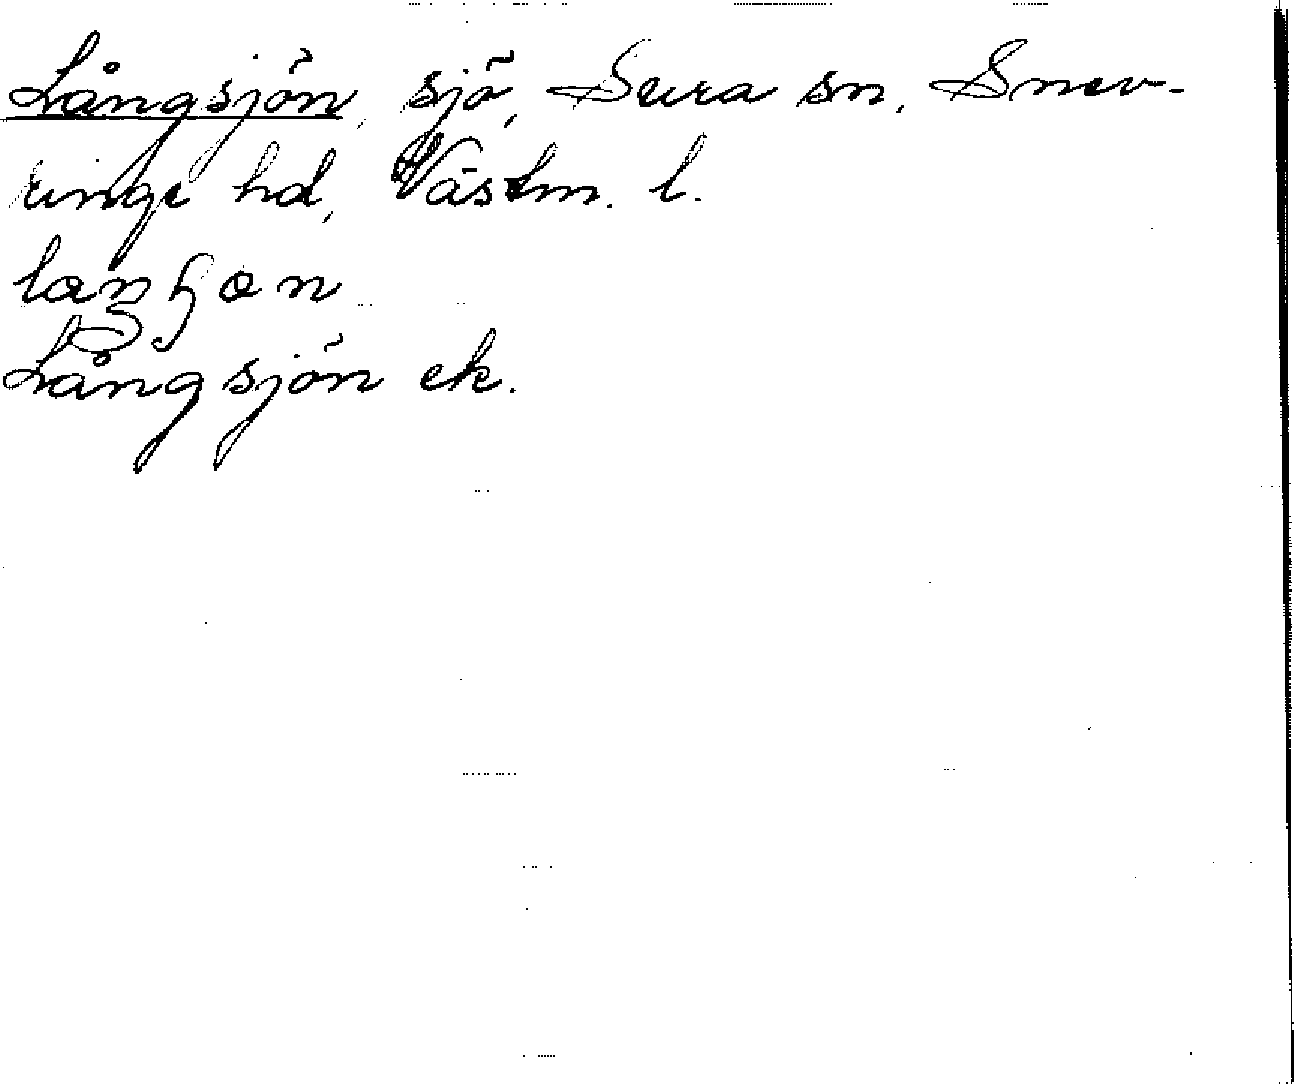 Långsjön, sjö, Sura sn, Snev-
ringe hd, Västm. l.
Långsjön ek.